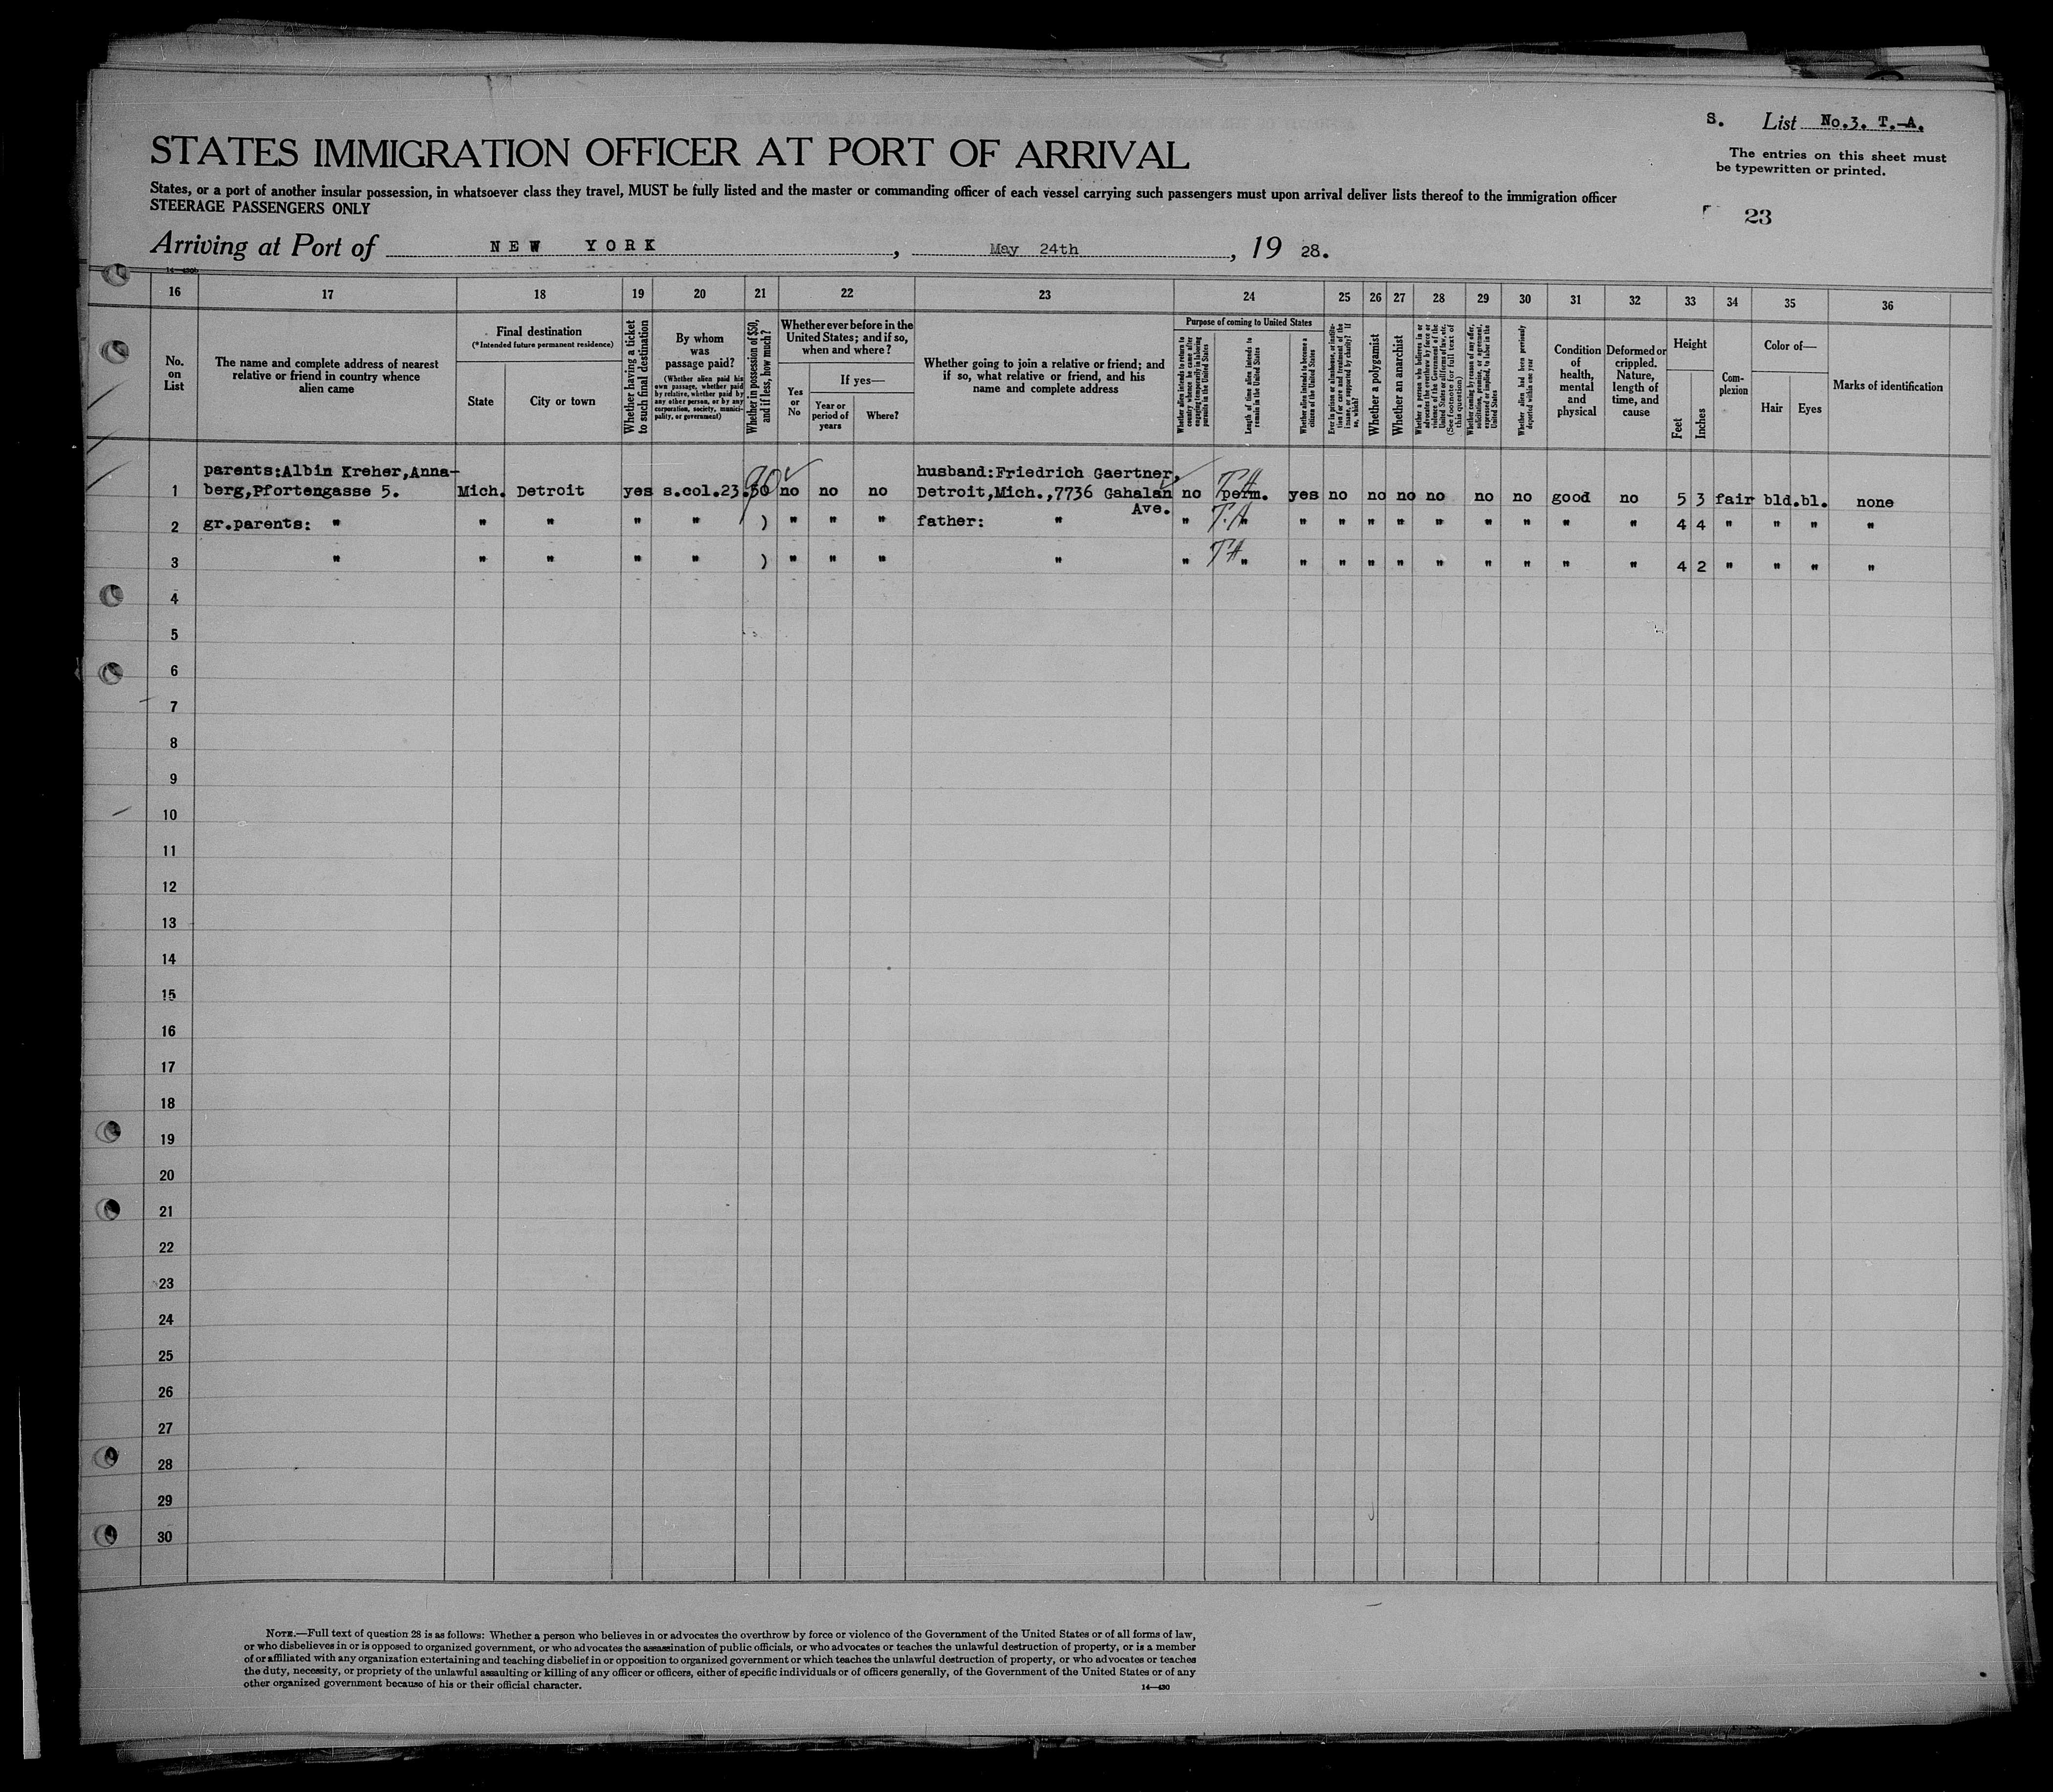 S. List No.3. T.-A.
STATES IMMIGRATION OFFICER AT PORT OF ARRIVAL
The entries on this sheet must
be typewritten or printed.
States, or a port of another insular possession, in whatsoever class they travel, MUST be fully listed and the master or commanding officer of each vessel carrying such passengers must upon arrival deliver lists thereof to the immigration officer
STEERAGE PASSENGERS ONLY
23
Arriving at Port of NEW YORK, May 24th, 19 28.
16 17 18 19 20 21 22 23 24 25 26 27 28 29 30 31 32 33 34 35 36
No.
on
List
The name and complete address of nearest
relative or friend in country whence
alien came
Final destination
(*Intended future permanent residence)
State
City or town
Whether having a ticket
to such final destination
By whom
was
passage paid?
(Whether alien paid his
own passage, whether paid
by relative, whether paid by
any other person, or by any
corporation, society, munici-
pality, or government)
Whether in possession of $50,
and if less, how much?
Whether ever before in the
United States; and if so,
when and where?
Yes
or
No
If yes—
Year or
period of
years
Where?
Whether going to join a relative or friend; and
if so, what relative or friend, and his
name and complete address
Purpose of coming to United States
Whether alien intends to return to
country whence he came after
engaging temporarily in laboring
pursuits in the United States
Length of time alien intends to
remain in the United States
Whether alien intends to become a
citizen of the United States
Ever in prison or almshouse, or institu-
tion for care and treatment of the
insane, or supported by charity? If
so, which?
Whether a polygamist
Whether an anarchist
Whether a person who believes in or
advocates the overthrow by force or
violence of the Government of the
United States or all forms of law, etc.
(See footnote for full text of
this question)
Whether coming by reason of any offer,
solicitation, promise, or agreement,
expressed or implied, to labor in the
United States
Whether alien had been previously
deported within one year
Condition
of
health,
mental
and
physical
Deformed or
crippled.
Nature,
length of
time, and
cause
Height
Feet
Inches
Com-
plexion
Color of—
Hair
Eyes
Marks of identification
parents:Albin Kreher,Anna- husband:Friedrich Gaertner, T.A
1 berg,Pfortengasse 5. Mich. Detroit yes s.col.23.50 no no no Detroit,Mich.,7736 Gahalan no perm. yes no no no no no no good no 5 3 fair bld. bl. none
Ave.
2 gr.parents: " " " " " ) " " " father: " " T.A " " " " " " " " " " 4 4 " " " "
3 " " " " " ) " " " " " TA " " " " " " " " " " 4 2 " " " "
4
5
6
7
8
9
10
11
12
13
14
15
16
17
18
19
20
21
22
23
24
25
26
27
28
29
30
NOTE.—Full text of question 28 is as follows: Whether a person who believes in or advocates the overthrow by force or violence of the Government of the United States or of all forms of law,
or who disbelieves in or is opposed to organized government, or who advocates the assassination of public officials, or who advocates or teaches the unlawful destruction of property, or is a member
of or affiliated with any organization entertaining and teaching disbelief in or opposition to organized government or which teaches the unlawful destruction of property, or who advocates or teaches
the duty, necessity, or propriety of the unlawful assaulting or killing of any officer or officers, either of specific individuals or of officers generally, of the Government of the United States or of any
other organized government because of his or their official character.
14—430